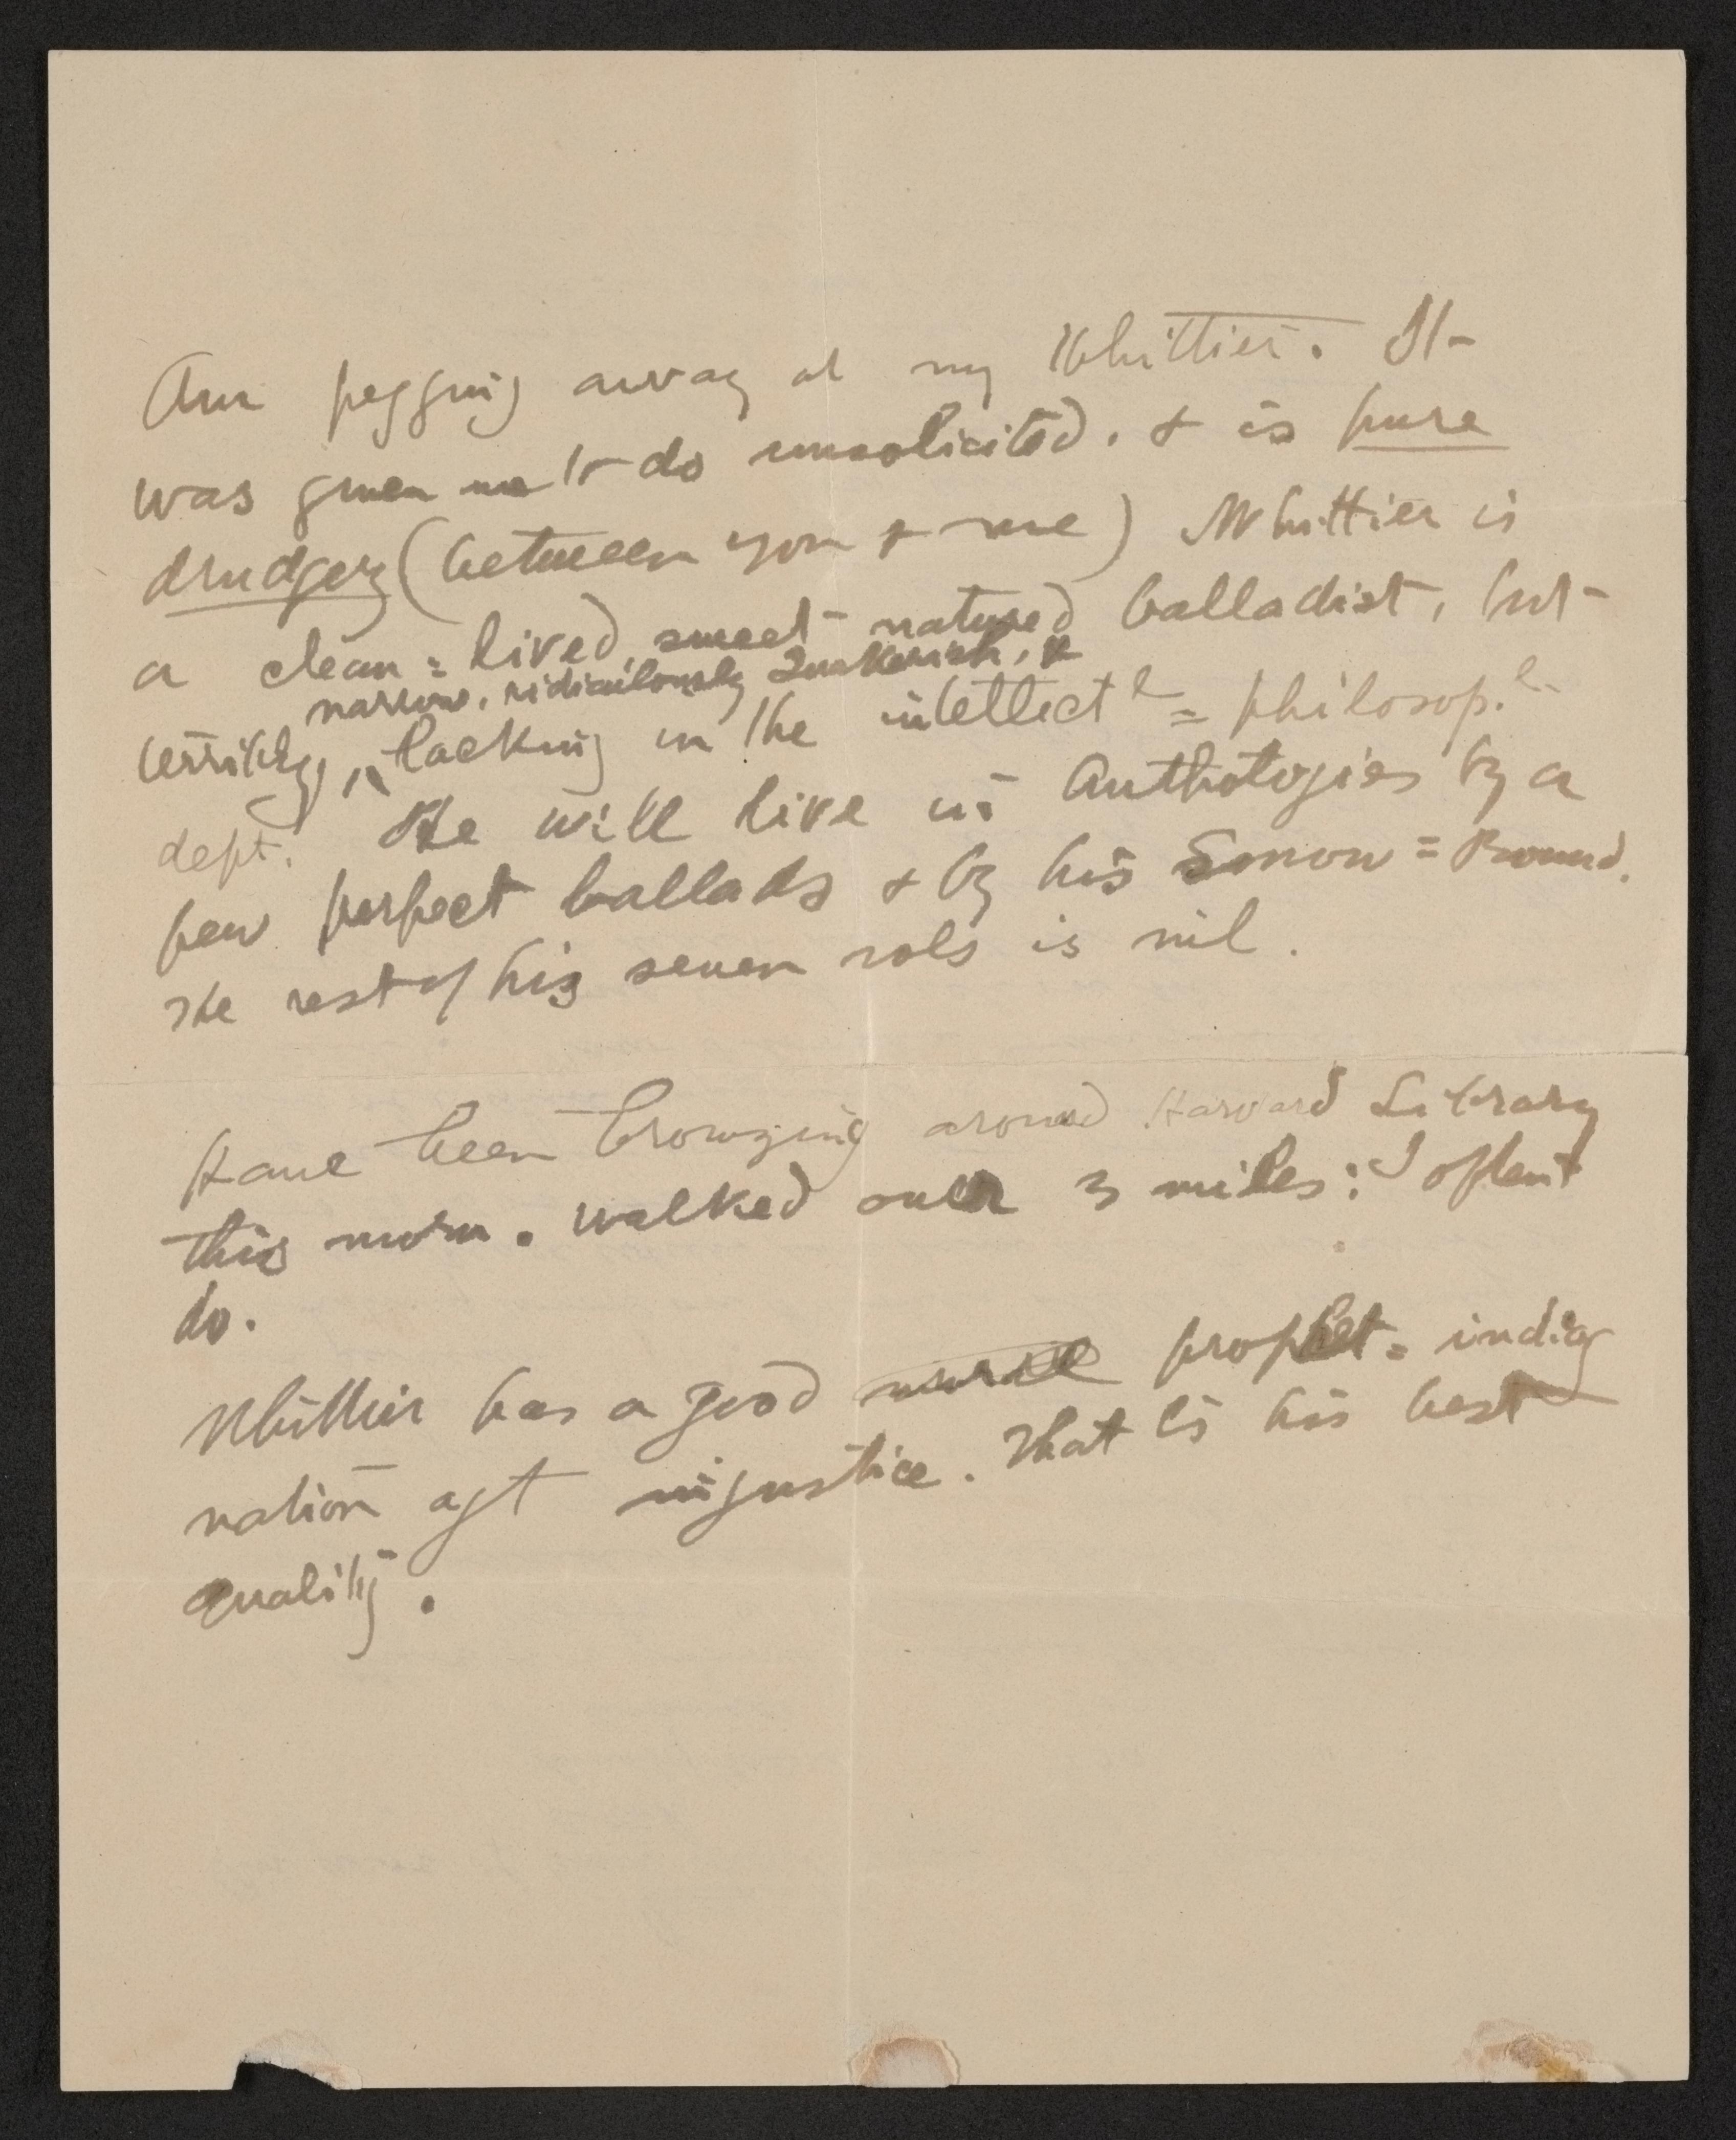 Am pegging away at my Whittier. It
was given me to do unsolicited, & is pure
drudgery (between you & me) Whittier is
a clean=lived sweet-natured balladist, but
narrow, ridiculously Quakerish, &
terribly, ^ lacking in the intellectl=philosopl
dept. He will live in Anthologies by a
few perfect ballads & by his Snow=Bound.
The rest of his seven vols is nil.
Have been browzing around Harvard Library
this morn. walked over 3 miles: I often
do.
Whittier has a good moral prophet=indig
nation agt injustice. That is his best
quality.